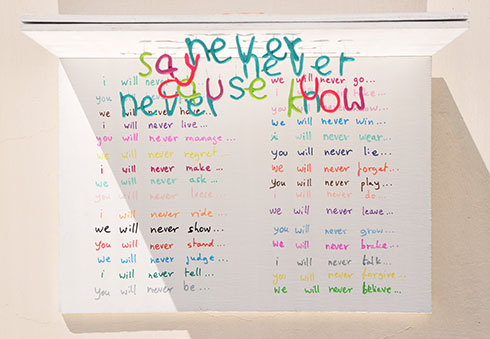 never
say never
cause
never know
i will never
you
we will never have...
i will never live...
you will never manage...
we will never regret...
i will never make...
we will never ask...
you will never leave...
i will never ride...
we will never show...
you will never stand...
we will never judge...
i will never tell...
you will never be...
we will never go...
we will never win...
i will never wear...
you will never lie...
we will never forget...
you will never play...
i will never do...
we will never leave...
you will never grow...
we will never broke...
i will never talk...
you will never forgive...
we will never believe...